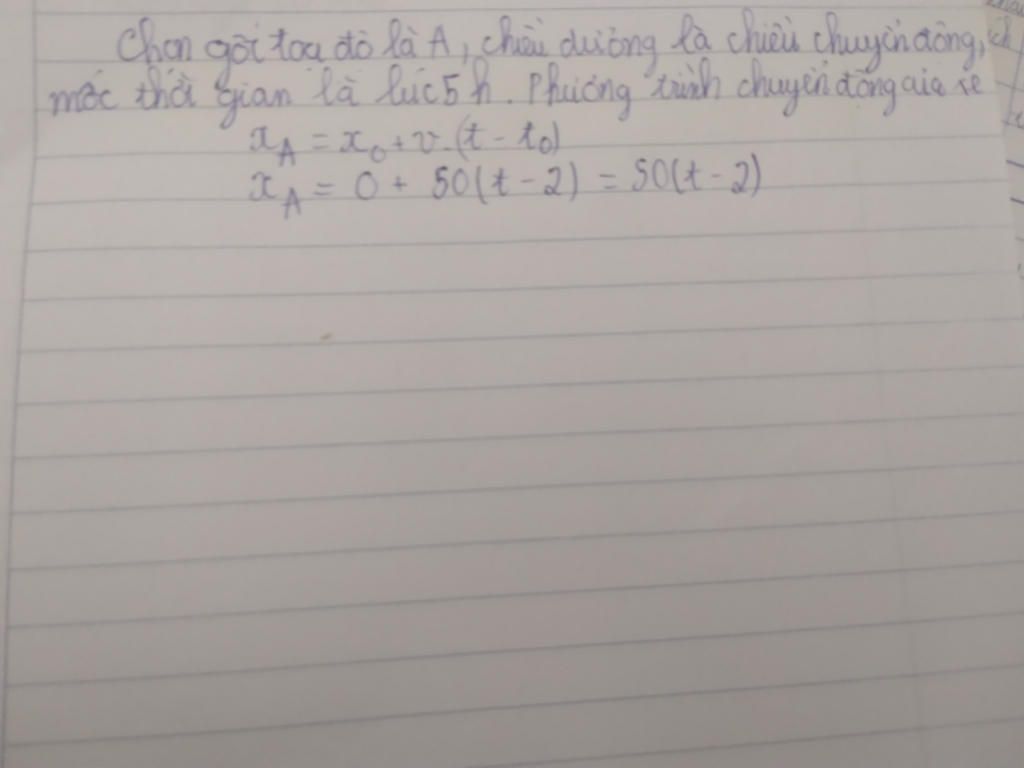 Chọn gốc toạ độ là A, chiều dương là chiều chuyển động,
mốc thời gian là lúc 5 h. Phương trình chuyển động của xe
x_A = x_0 + v.(t - t_0)
x_A = 0 + 50(t - 2) = 50(t - 2)